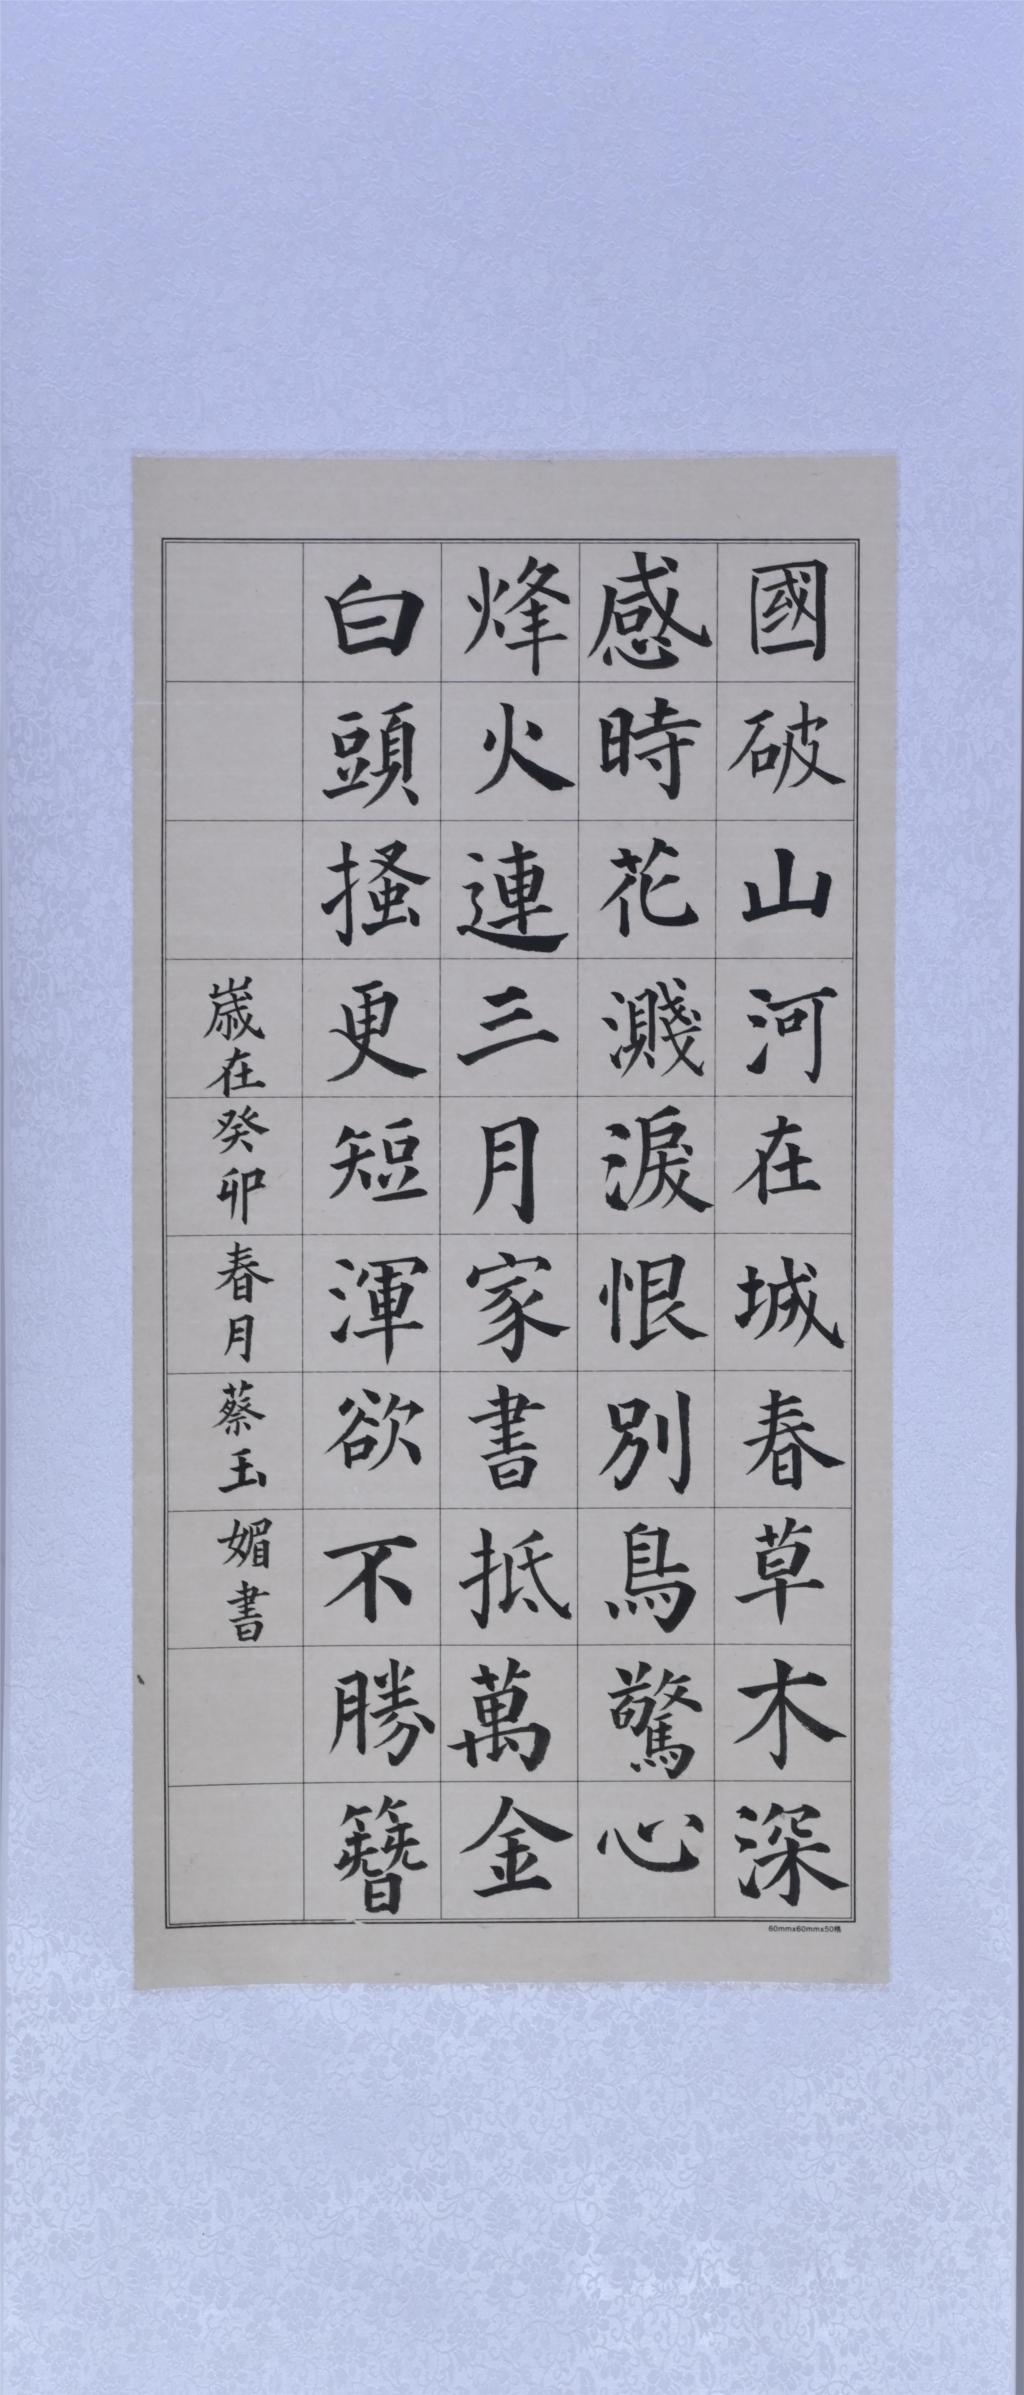 國破山河在城春草木深
感時花濺淚恨別鳥驚心
烽火連三月家書抵萬金
白頭搔更短渾欲不勝簪
歲在癸卯春月蔡玉媚書
60mmx60mmx50格